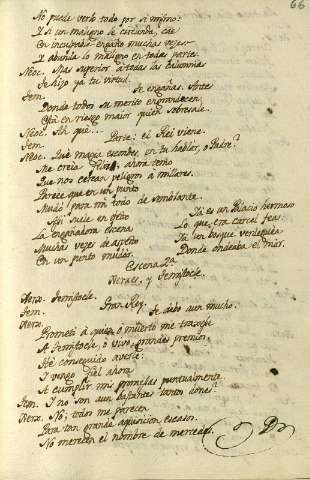 66
No puede verlo todo por si mismo:
Y si un maligno le circunda, cae
En inculpable engaño muchas vezes
Y abunda lo maligno en todas partes.
Neoc. Mas superior a todas las calumnias
Se hizo ya tu virtud.
Tem. Te engañas. Antes
Donde todos su merito engrandecen
Está en riesgo maior quien sobresale.
Neoc. Ah que...
Tem. Parte: el Rei viene.
Neoc. Que magia escondes, en tu hablar, o Padre?
Me creia feliz, ahora temo
Que nos cercan peligros a millares.
Parece que en un punto
Mudó para mi todo de semblante.
Asi suele en gētro
La engañadora escena
Muchas vezes de aspecto
En un punto mudar.
Ya es un Palacio hermoso
Lo que era carcel fea:
Ya un bosque verdeguea
Donde ondeaba el mar.
Escena 2a
Xerxes, y Temistocle.
Xerx. Temistocle.
Tem. Gran Rey.
Xerx. Te debo aun mucho.
Prometi á quien ó muerto me traxese
A Temistocle, ó vivo, grandes premios,
Hè conseguido averle:
Y vengo fiel ahora
A cumplir mis promesas puntualmente
Tem. Y no son aun bastantes tantos dones?
Xerx. No; todos me parecen
Para tan grande aquisicion escasos.
No merecen el nombre de mercedes.